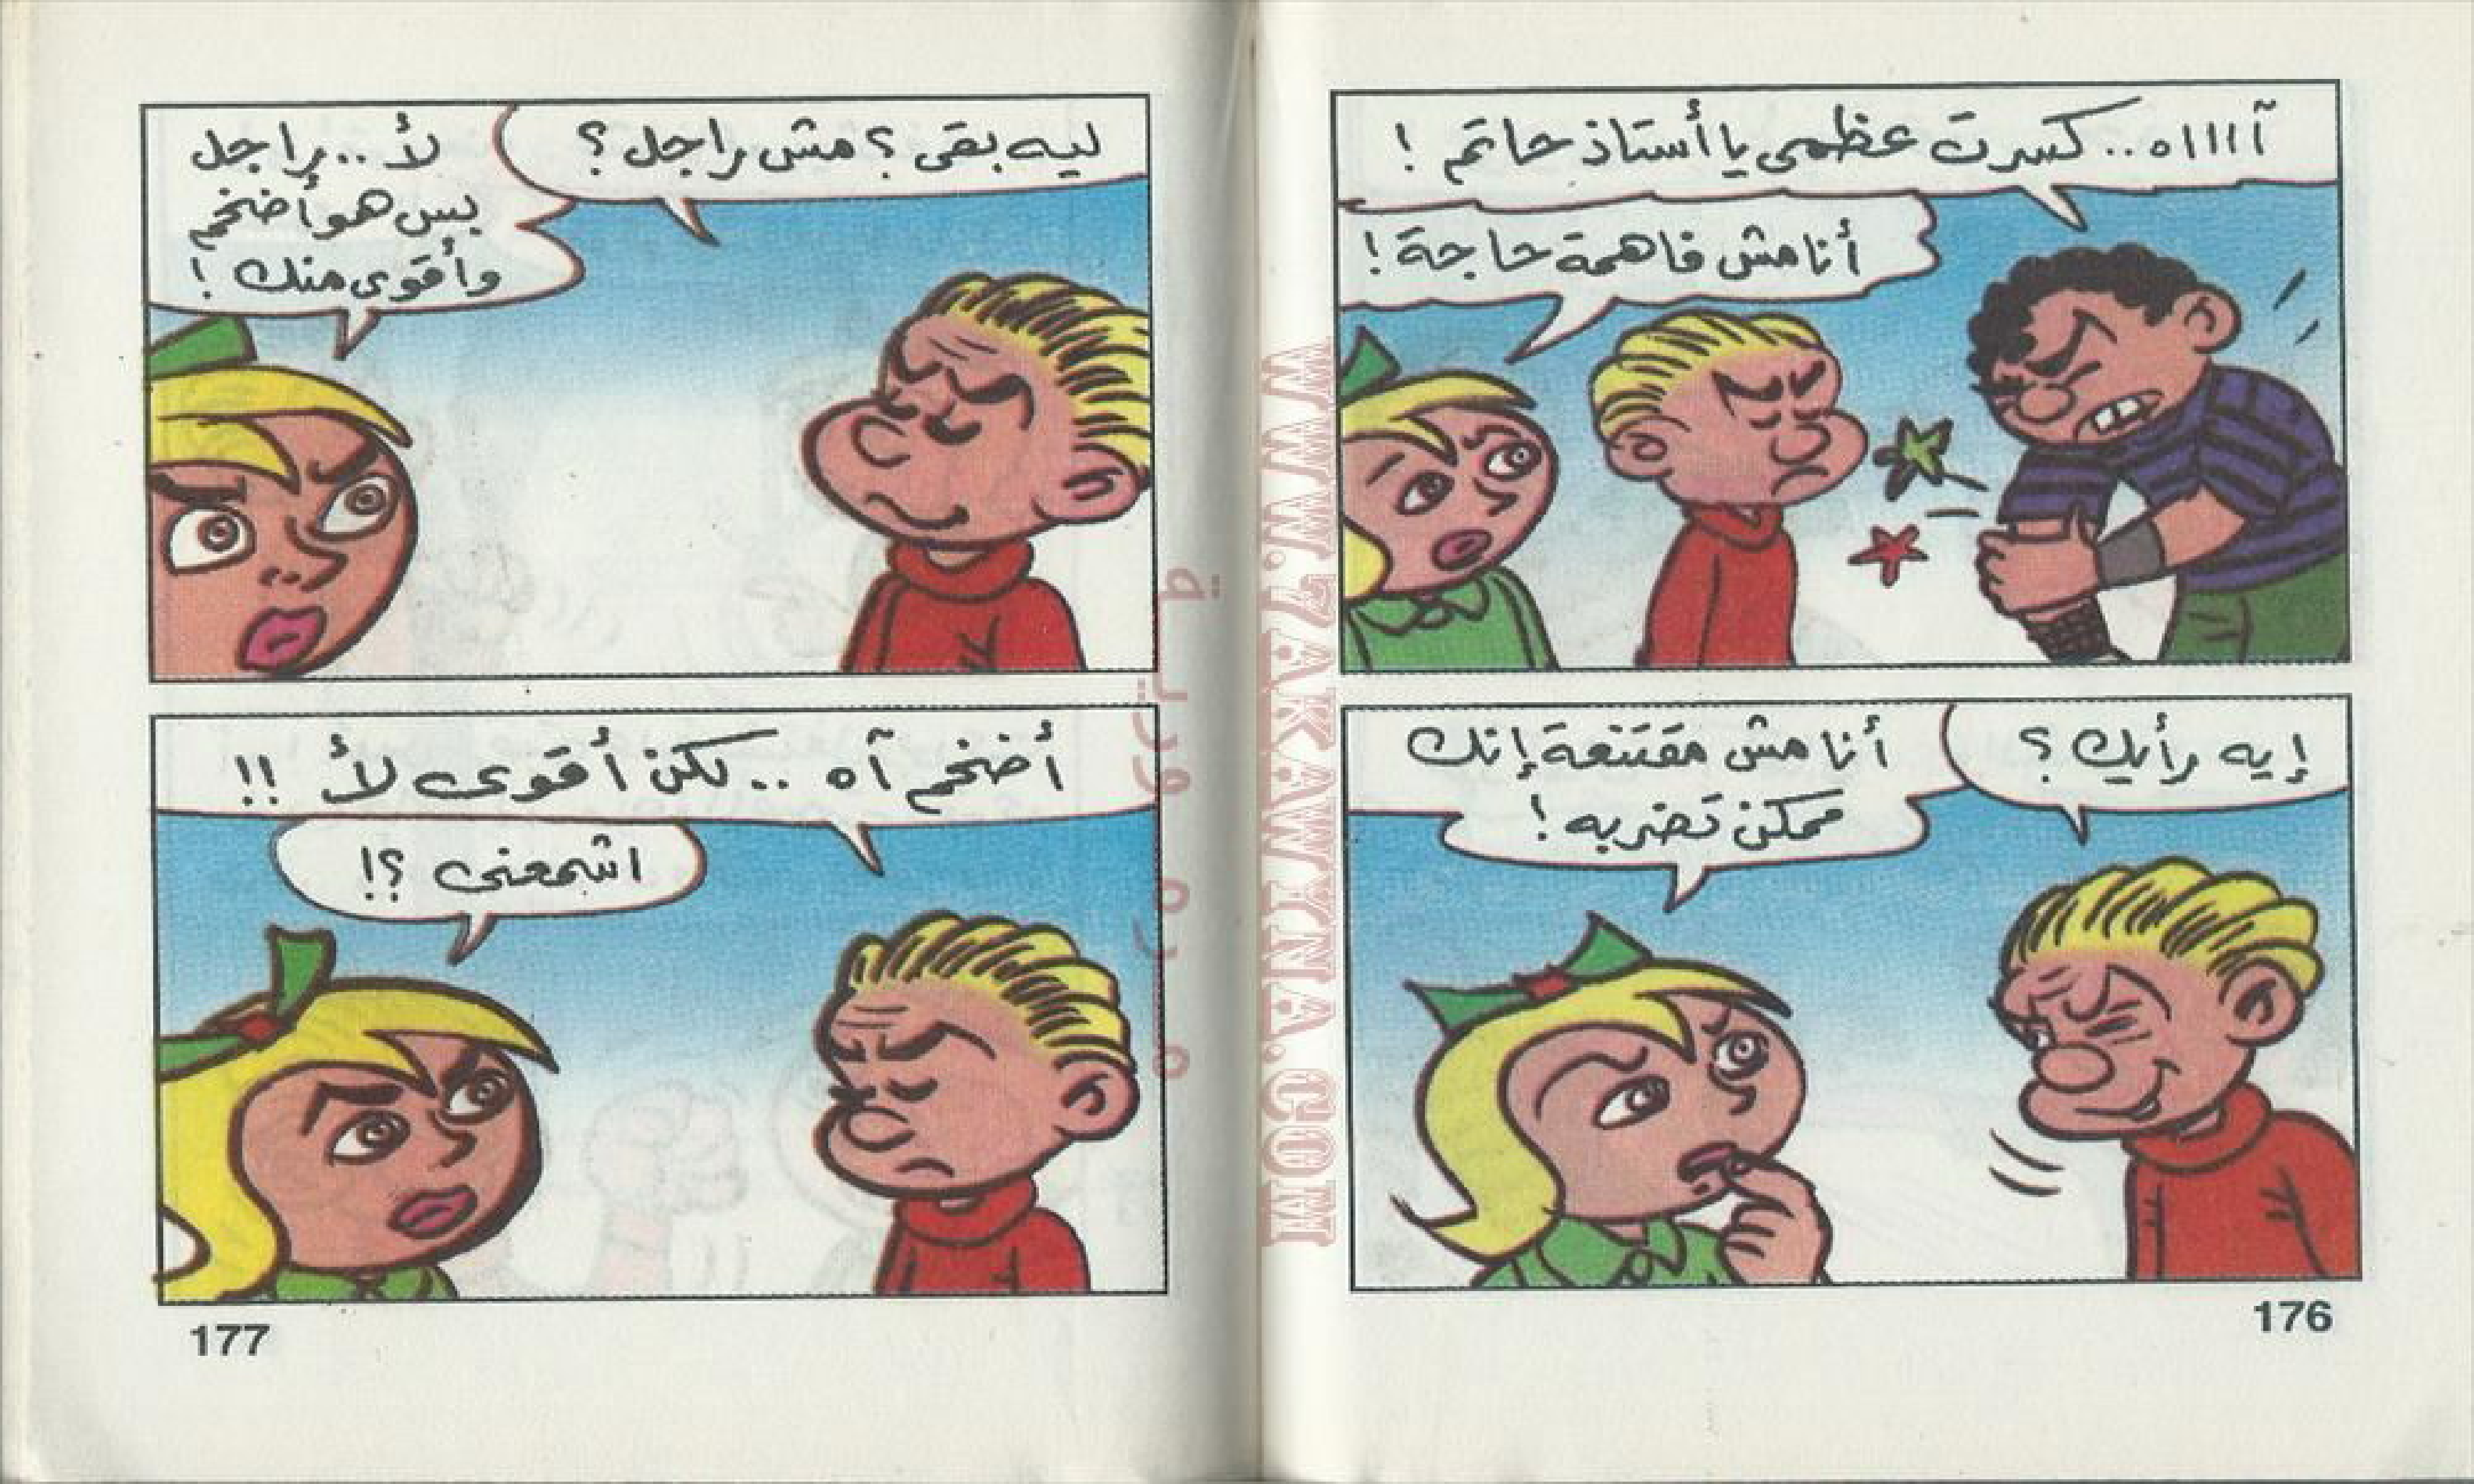 آاااه.. كسرت عظمى يا أستاذ حاتم !
أنا مش فاهمة حاجة !
إيه رأيك ؟
أنا مش مقتنعة إنك
ممكن تضربه !
176
ليه بقى ؟ مش راجل ؟
لأ.. راجل
بس هو أضخم
وأقوى منك !
أضخم آه .. لكن أقوى لأ !!
اشمعنى ؟!
177
WWW.7AKAWYNA.COM